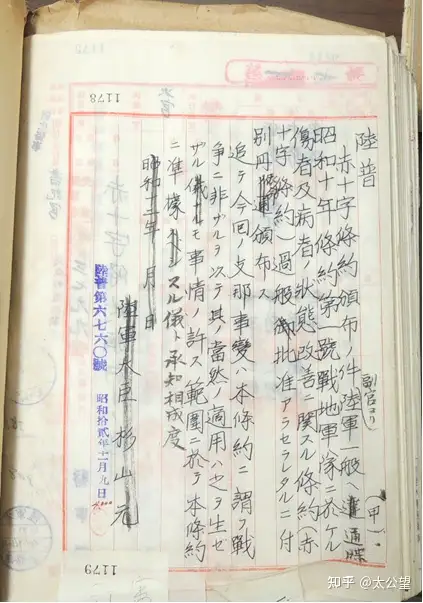 (甲)
陸普
副官ヨリ
赤十字條約頒布ノ件陸軍一般ヘ通牒
昭和十年條約第一號戰地軍隊ニ於ケル
傷者及病者ノ狀態改善ニ關スル條約(赤
十字條約)過般批准アラセラレタルニ付
別冊通頒布ス
追テ今回ノ支那事變ハ本條約ニ謂フ戰
爭ニ非ザルヲ以テ其ノ當然ノ適用ハ之ヲ生ゼ
ザル儀ナルモ事情ノ許ス範圍ニ於テ本條約
ニ準據スル儀ト承知相成度
昭和十二年 月 日
陸軍大臣杉山元
陸普第六七六〇號 昭和拾貳年十一月九日
1178
1179
知乎 @太公望